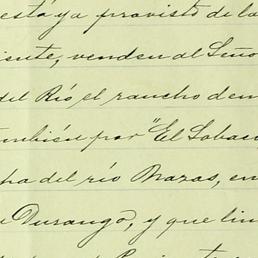 está ya provisto de la
venden al Seño
del Río el rancho den
también por "El Sobaco
del río Nazas, en
Durango, y que lin